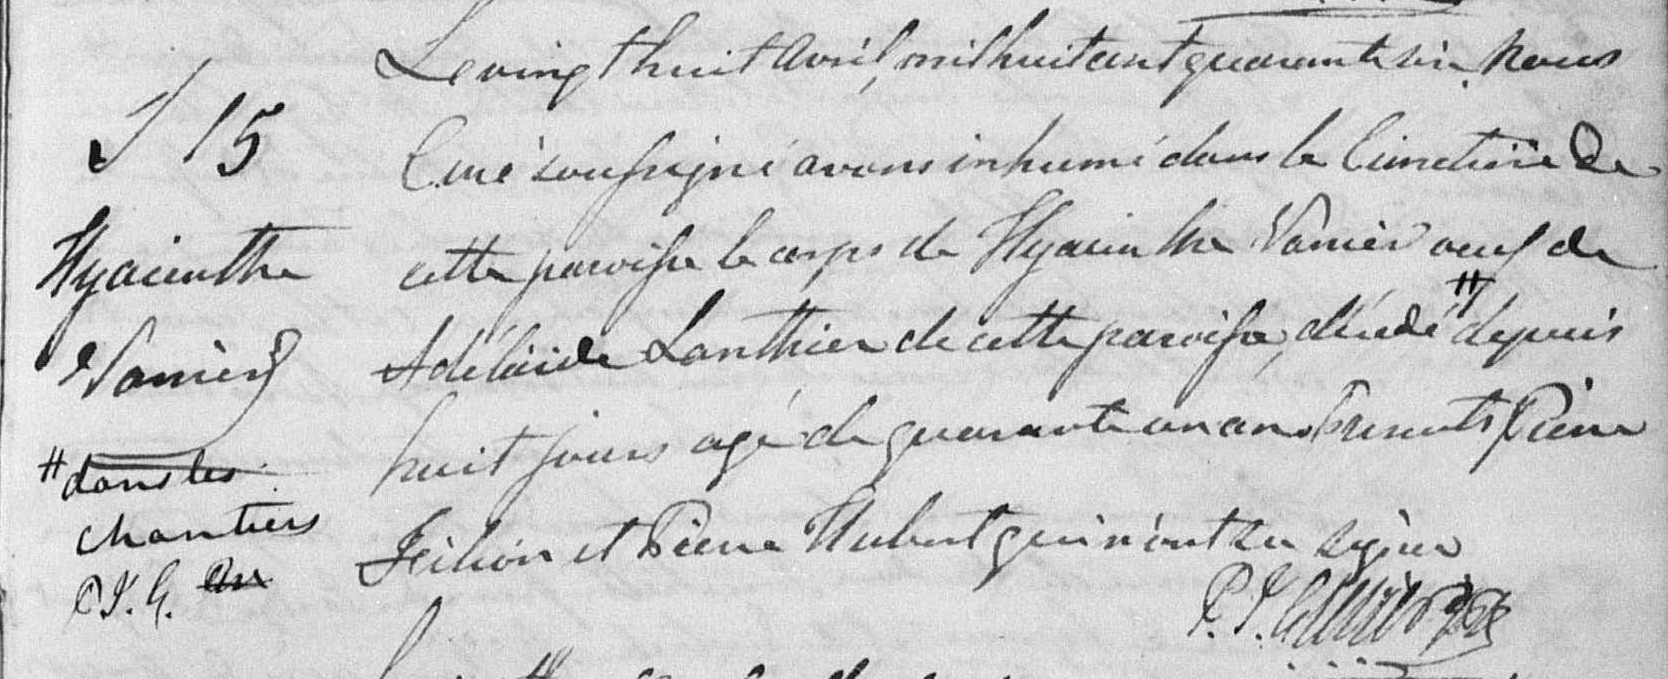 S 15
Hyacinthe
Vanier
# dans les
chantiers
P. J. G. Ptre
Le vingt huit Avril, mil huit cent quarante six, Nous
Curé soussigné avons inhumé dans le Cimetière de
cette paroisse le corps de Hyacinthe Vanier veuf de
Adélaide Lanthier de cette paroisse, décédé # depuis
huit jours agé de quarante un an. Presents Pierre
Filion et Pierre Hubert qui n'ont su signer
P. J.